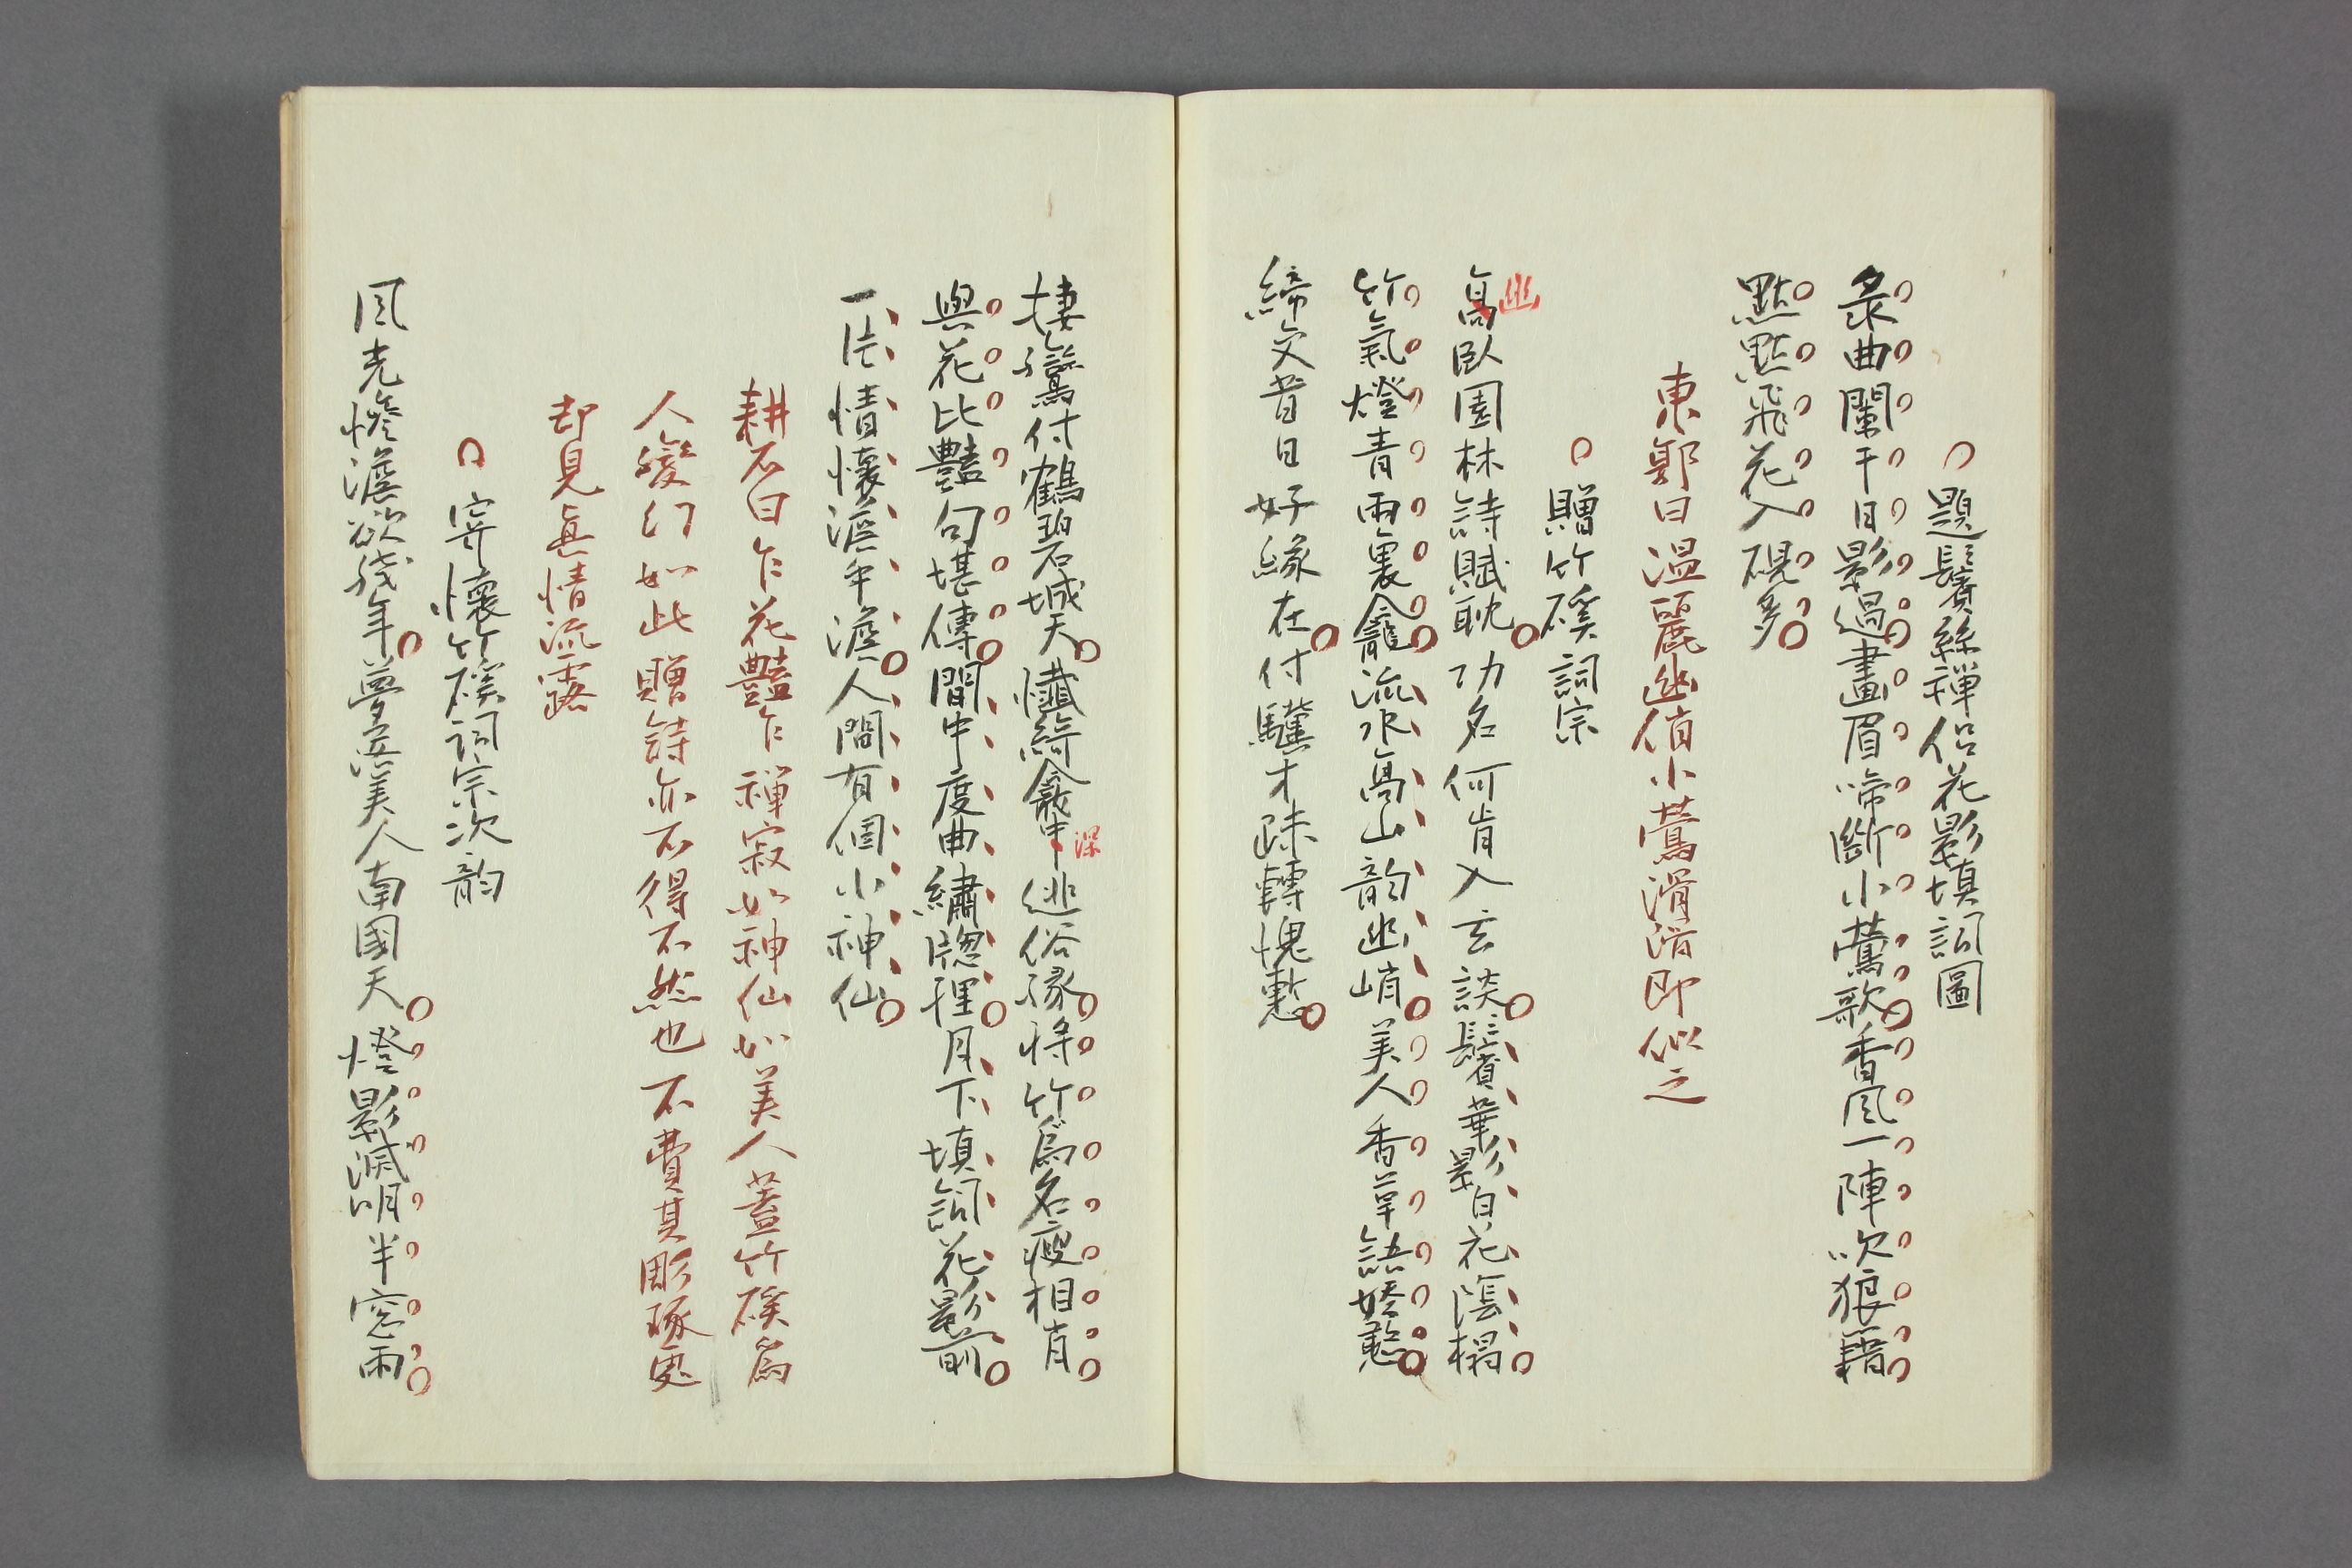 題鬢絲禪侶花影填詞圖
彔曲闌干日影過畫眉啼斷小鶯歌香風一陣吹狼藉
點點飛花入硯多
東郭曰温麗幽俏小鶯滑滑即似之
贈竹磎詞宗
幽
高臥園林詩賦耽功名何肯入玄談鬢華影白花陰榻
竹氣燈青雨裏龕流水高山韵幽峭美人香草語嬌憨
締交昔日好緣在付驥才踈轉愧慙
棲鸞付鶴碧城天懺綺龕中逃俗緣將竹爲名瘦相肖
深
與花比豔句堪傳閒中度曲繡牕裡月下填詞花影前
一片情懷濃乍澹人間有個小神仙
耕石曰乍花豔乍禪寂如神仙如美人蓋竹磎爲
人變幻如此贈詩亦不得不然也不費其彫琢更
却見真情流露
寄懷竹磎詞宗次韵
風光慘澹欲殘年夢惡美人南國天燈影滅明半窓雨